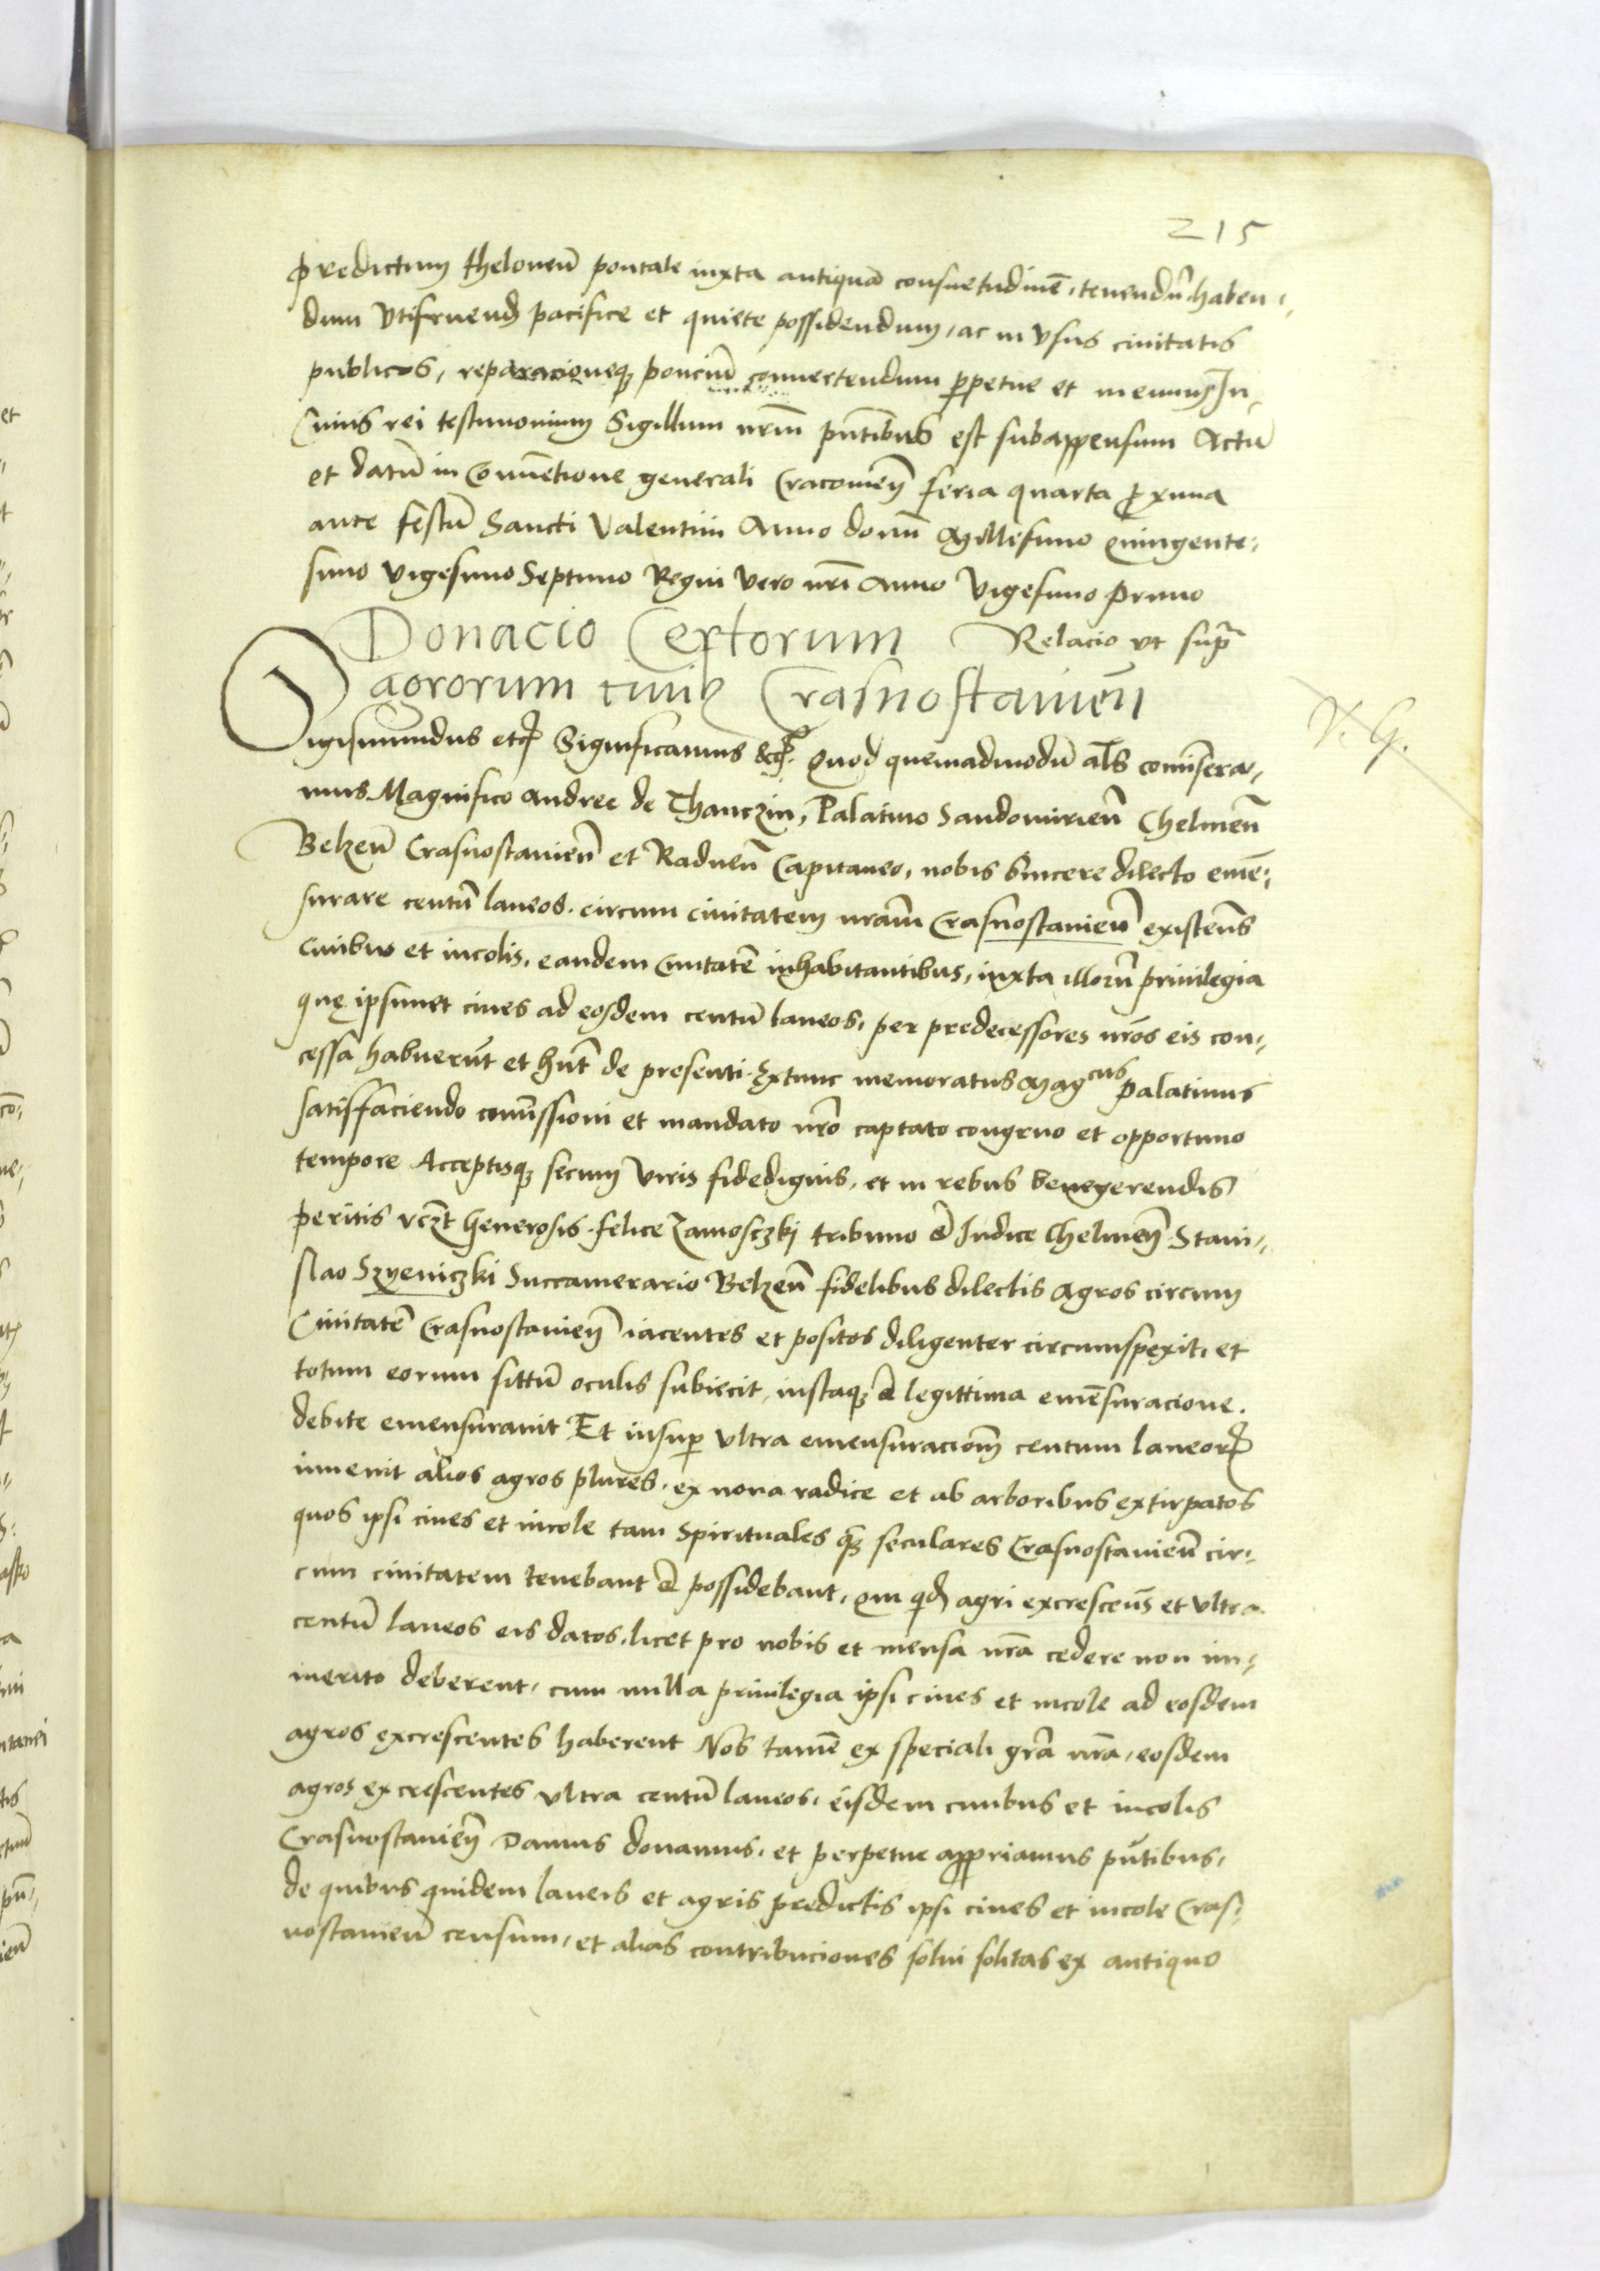 215
predictum theloneū pontale iuxta antiquā consuetudinē, tenendū haben,
dum Utifruend pacifice et quiete possidendum, ac in Usus ciuitatis
publicos, reparacioneq̢ ponciū conuertendum ꝑpetue et in euum In
Cuius rei testimonium Sigillum nr̄m pn̄tibus est subappensum Actū
et datū in Conuētione generali Cracouien̄ feria quarta ꝓxima
ante festū Sancti Valentini Anno domi Millesimo Quingente,
simo Vigesimo Septimo Regni Vero nr̄i Anno Vigesimo Primo
Relacio ut supra
Donacio Certorum
agrorum ciuib Crasnostauien̄
Sigismundus etc Significamus &c. Quod quemadmodū als comisera,
mus Magnifico Andree de Thanczin, Palatino Sandomirien̄ Chelmen̄
Belzen̄ Crasnostauien̄ et Radnen̄ Capitaneo, nobis Sincere dilecto emē,
surare centū laneos circum ciuitatem nr̄am Crasnostauien̄ existen̄s
Ciuibus et incolis, eandem Ciuitatē inhabitantibus, iuxta illorū priuilegia
quę ipsimet ciues ad eosdem centū laneos, per predecessores nr̄os eis con,
cessa habuerūt et hn̄t de presenti. Extunc memoratus Magcus Palatinus
satisfaciendo comissioni et mandato nr̄o captato congruo et opportuno
tempore Acceptisq̢ secum Viris fidedignis, et in rebus benegerendis
peritis vczt Generosis felice Zamosczkj tribuno & Iudice Chelmen̄ Stani,
slao Szyeniczki Succamerario Belzen̄ fidelibus dilectis Agros circum
Ciuitatē Crasnostauien̄ iacentes et positos diligenter circumspexit, et
totum eorum sittū oculis subiecit, iustaq̢ & legittima emēsuracione.
debite emensurauit Et insuꝑ Ultra emensuracionē centum laneorꝝ
inuenit alios agros plures, ex noua radice et ab arboribus extirpatos
quos ipsi ciues et incole tam Spirituales q̢ seculares Crasnostauien̄ cir,
cum ciuitatem tenebant & possidebant, Qui qd agri excrescen̄s et Ultra
centū laneos eis datos, licet pro nobis et mensa nr̄a cedere non im,
merito deberent, cum nulla priuilegia ipsi ciues et incole ad eosdem
agros excrescentes haberent Nos tamē ex speciali gr̄a nr̄a, eosdem
agros excrescentes Ultra centū laneos, eisdem ciuibus et incolis
Crasnostauien̄ Damus donamus, et perpetue appriamus pn̄tibus,
de quibus quidem laneis et agris predictis ipsi ciues et incole Cras,
nostauien̄ censum, et alias contribuciones solui solitas ex antiquo